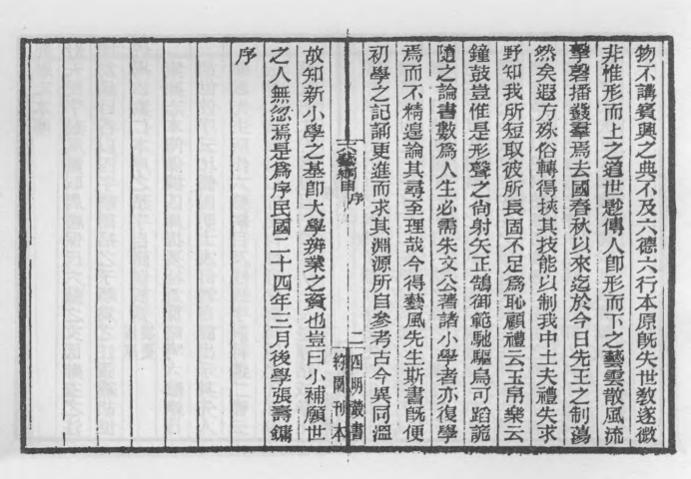 物不講賓興之典不及六德六行本原旣失世敎遂微
非惟形而上之道世尠傳人卽形而下之藝雲散風流
擊磬播鼗羣焉去國春秋以來迄於今日先王之制蕩
然矣遐方殊俗轉得挾其技能以制我中土夫禮失求
野知我所短取彼所長固不足爲恥顧禮云玉帛樂云
鐘鼓豈惟是形聲之尙射矢正鵠御範馳驅烏可蹈詭
隨之論書數爲人生必需朱文公著諸小學者亦復學
焉而不精遑論其尋至理哉今得藝風先生斯書旣便
初學之記誦更進而求其淵源所自參考古今異同溫
六藝綱目 序
二
四明叢書
約園刊本
故知新小學之基卽大學辨業之資也豈曰小補願世
之人無忽焉是爲序民國二十四年三月後學張壽鏞
序